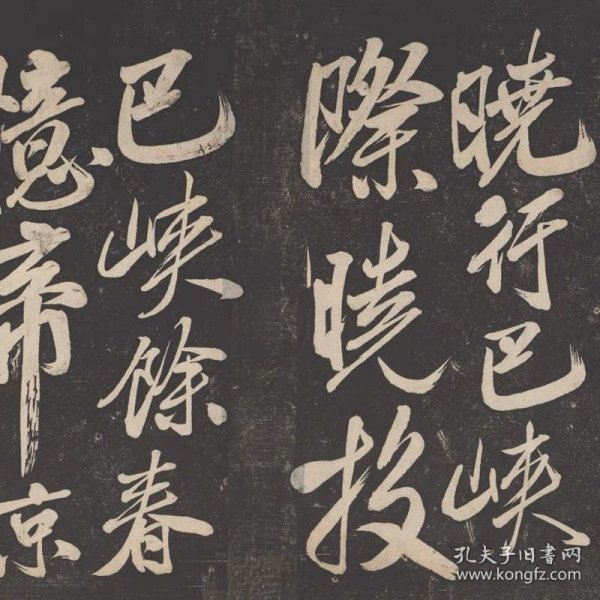 曉行巴峽
際曉投
巴峽餘春
憶帝京
孔夫子旧書网
www.kongfz.com